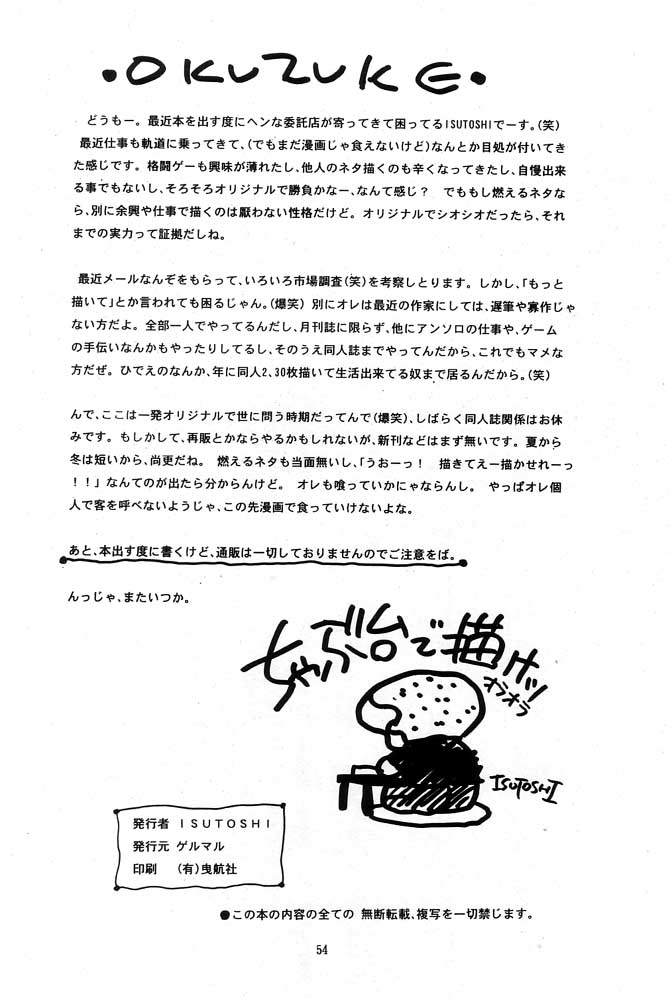 •OKUZUKE•
どうもー。最近本を出す度にヘンな委託店が寄ってきて困ってるISUTOSHIでーす。(笑)
最近仕事も軌道に乗ってきて、(でもまだ漫画じゃ食えないけど)なんとか目処が付いてき
た感じです。格闘ゲーも興味が薄れたし、他人のネタ描くのも辛くなってきたし、自慢出来
る事でもないし、そろそろオリジナルで勝負かなー、なんて感じ？　でももし燃えるネタな
ら、別に余興や仕事で描くのは厭わない性格だけど。オリジナルでシオシオだったら、それ
までの実力って証拠だしね。
最近メールなんぞをもらって、いろいろ市場調査(笑)を考察しとります。しかし、「もっと
描いて」とか言われても困るじゃん。(爆笑) 別にオレは最近の作家にしては、遅筆や寡作じゃ
ない方だよ。全部一人でやってるんだし、月刊誌に限らず、他にアンソロの仕事や、ゲーム
の手伝いなんかもやったりしてるし、そのうえ同人誌までやってんだから、これでもマメな
方だぜ。ひでえのなんか、年に同人2,30枚描いて生活出来てる奴まで居るんだから。(笑)
んで、ここは一発オリジナルで世に問う時期だってんで(爆笑)、しばらく同人誌関係はお休
みです。もしかして、再販とかならやるかもしれないが、新刊などはまず無いです。夏から
冬は短いから、尚更だね。　燃えるネタも当面無いし、「うおーっ！　描きてえー描かせれーっ
！！」なんてのが出たら分からんけど。　オレも喰っていかにゃならんし。　やっぱオレ個
人で客を呼べないようじゃ、この先漫画で食っていけないよな。
あと、本出す度に書くけど、通販は一切しておりませんのでご注意をば。
んっじゃ、またいつか。
ちゃぶ台で描けッ!
オラオラ
ISUTOSHI
発行者　ISUTOSHI
発行元　ゲルマル
印刷　(有)曳航社
●この本の内容の全ての 無断転載、複写を一切禁じます。
54